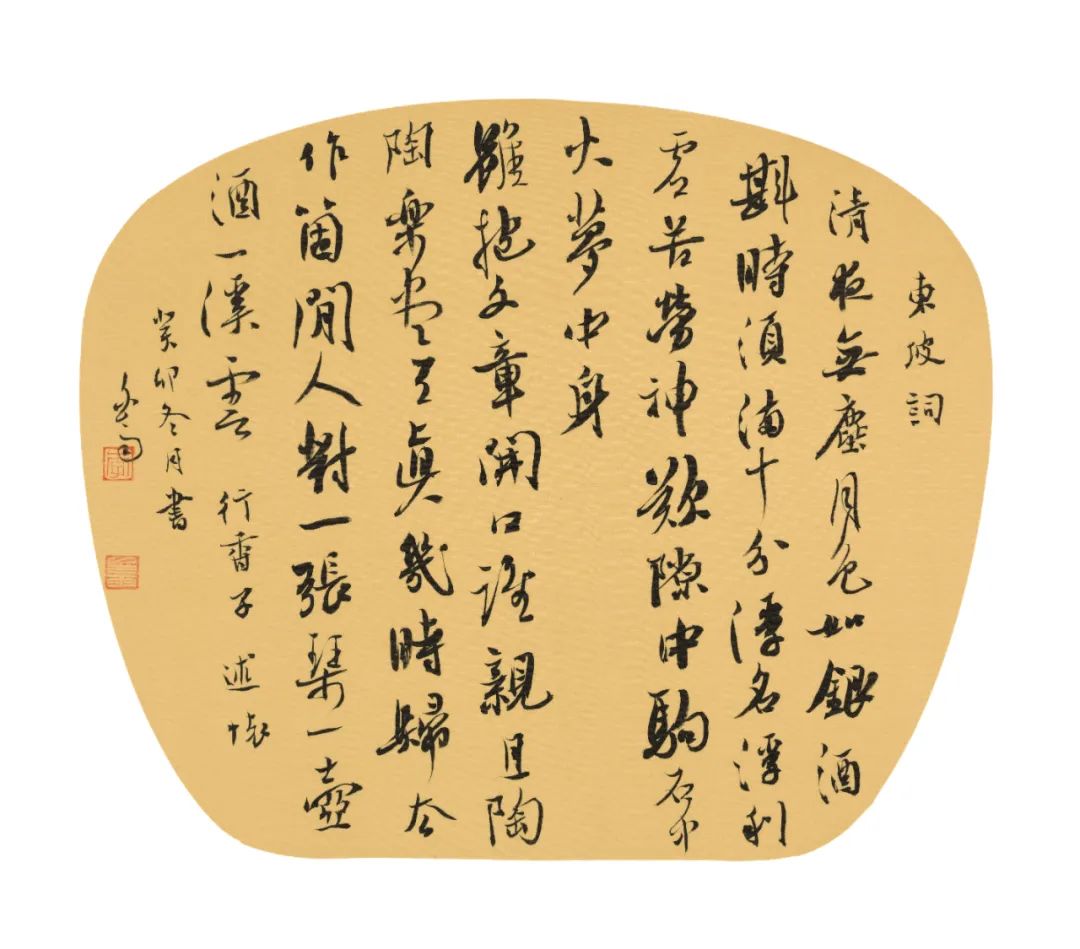 東坡詞
清夜無塵月色如銀酒
斟時須滿十分浮名浮利
虛苦勞神歎隙中駒石中
火夢中身
雖抱文章開口誰親且陶
陶樂盡天真幾時歸去
作箇閒人對一張琴一壺
酒一溪雲 行香子 述懷
癸卯冬月書